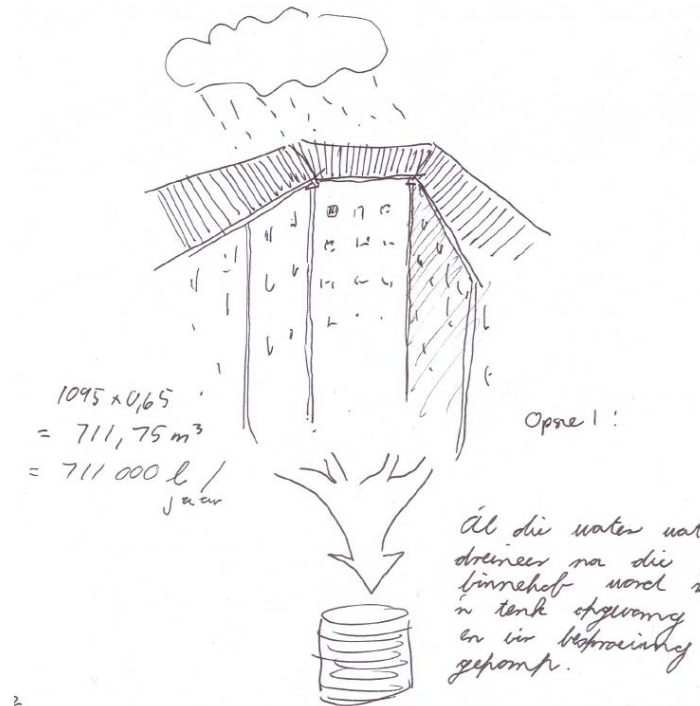 1095 x 0,65
= 711,75 m³
= 711 000 l /
jaar
Opsie 1 :
Al die water wat
dreineer na die
binnehof word
'n tenk opgevang
en vir besproeiing
gepomp.